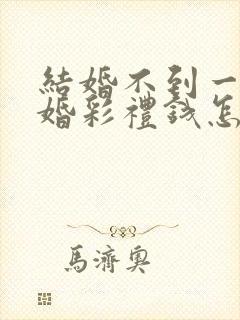 結婚不到一
婚彩禮錢怎
馬濟奧